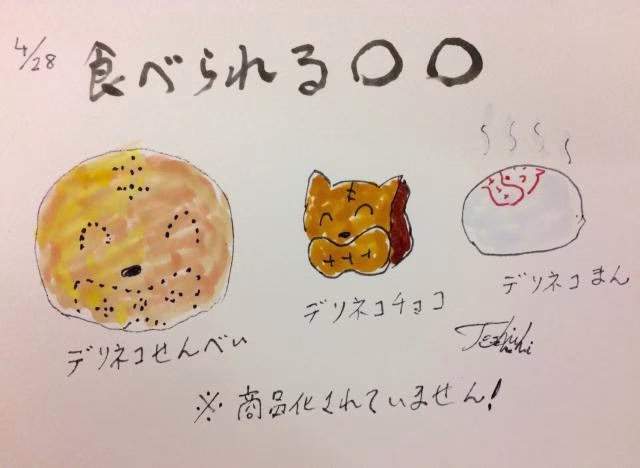 4/28
食べられる〇〇
デリネコせんべい
デリネコチョコ
デリネコまん
※商品化されていません!